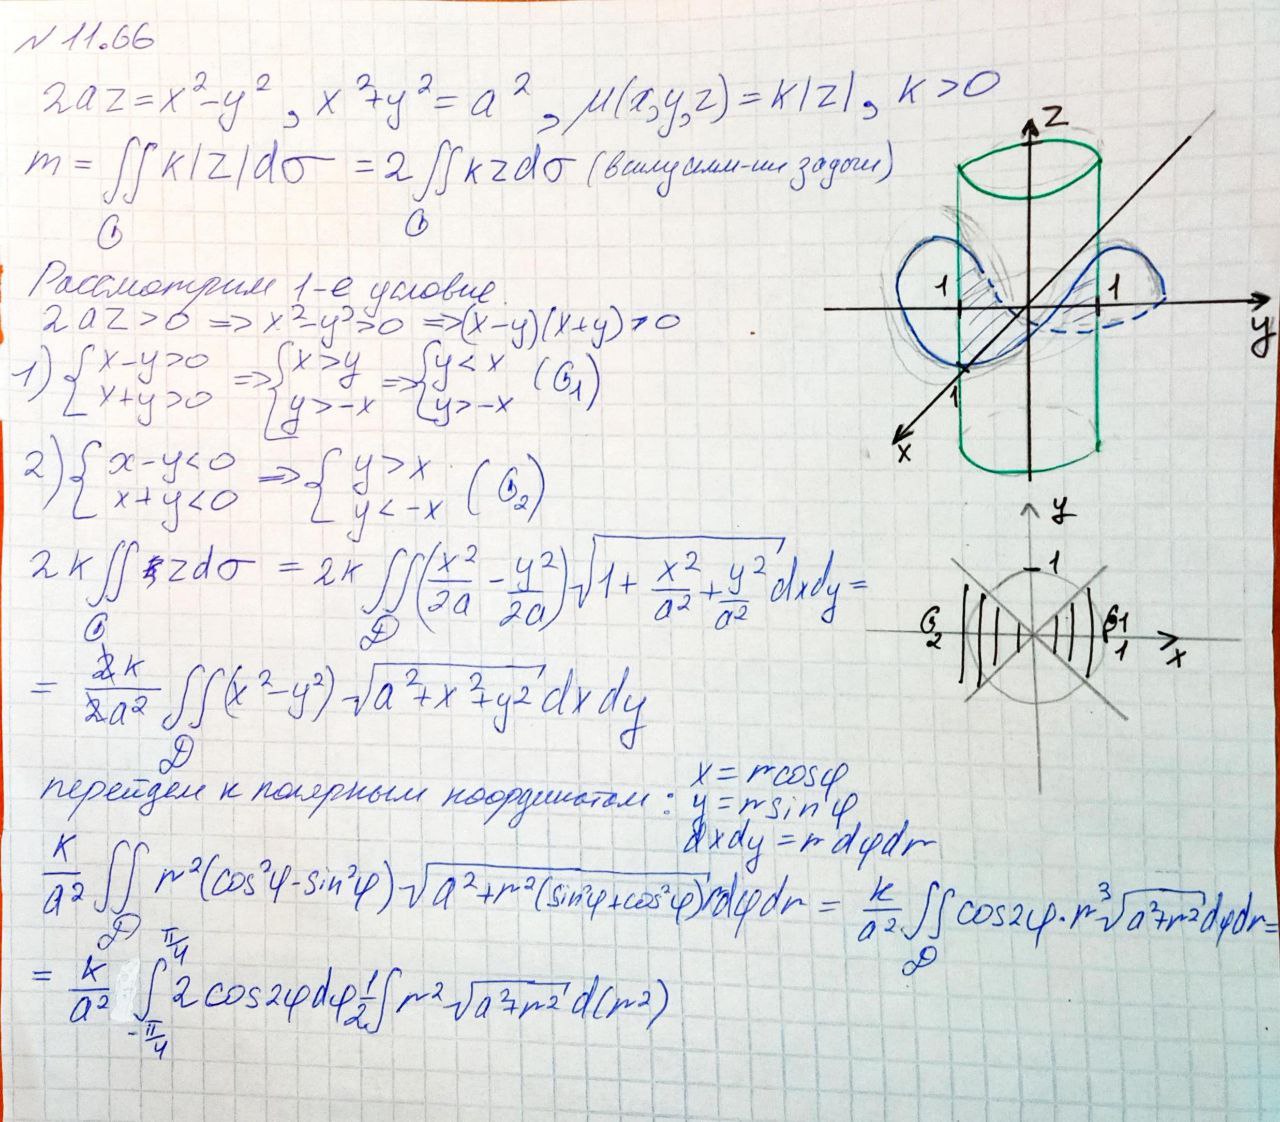 № 11.66
2az = x² - y², x² + y² = a², μ(x,y,z) = k|z|, k > 0
m = ∬ k|z|dσ = 2∬ kzdσ (в силу симм-ии задачи)
G G
Рассмотрим 1-е условие.
2az > 0 => x² - y² > 0 => (x-y)(x+y) > 0
1) { x-y>0, x+y>0 => { x>y, y>-x => { y<x, y>-x (G₁)
2) { x-y<0, x+y<0 => { y>x, y<-x (G₂)
2k ∬_G zdσ = 2k ∬_D (x²/2a - y²/2a) √(1 + x²/a² + y²/a²) dxdy =
= 2k/2a² ∬_D (x² - y²) √(a² + x² + y²) dxdy
перейдем к полярным координатам: x = r cosφ
y = r sinφ
dxdy = r dφdr
k/a² ∬_D r²(cos²φ - sin²φ) √(a² + r²(sin²φ + cos²φ)) rdφdr = k/a² ∬_D cos2φ · r³ √(a² + r²) dφdr =
= k/a² ∫_{-π/4}^{π/4} 2cos2φdφ ½∫ r² √(a² + r²) d(r²)
z
1
1
y
1
x
y
1
G₂
G₁
1
x